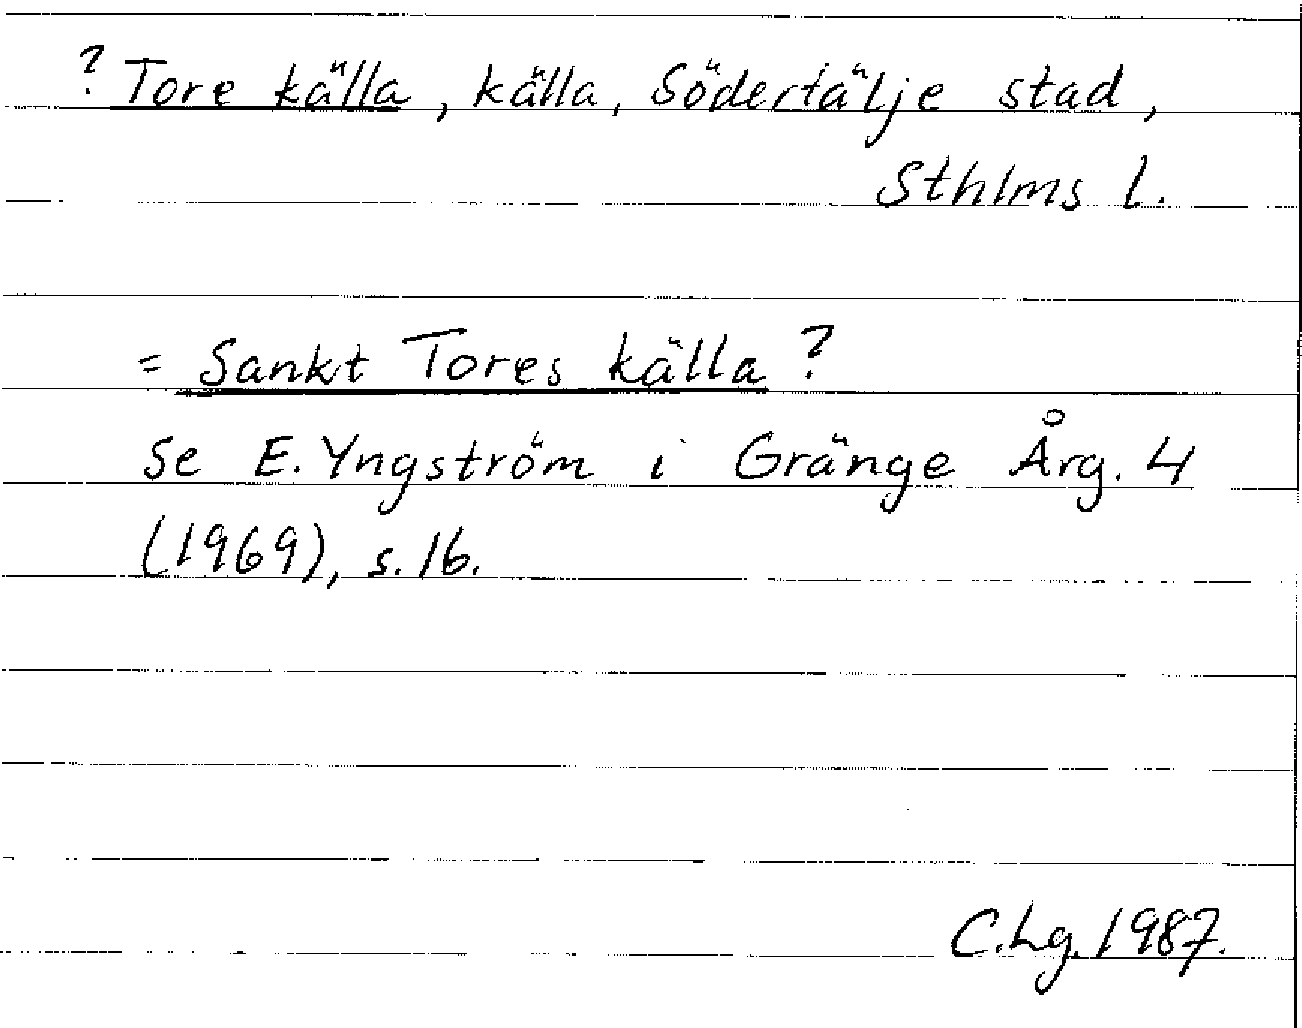 ? Tore källa, källa, Södertälje stad,
Sthlms l.
= Sankt Tores källa?
Se E. Yngström i Gränge Årg. 4
(1969), s. 16.
C.Lg. 1987.